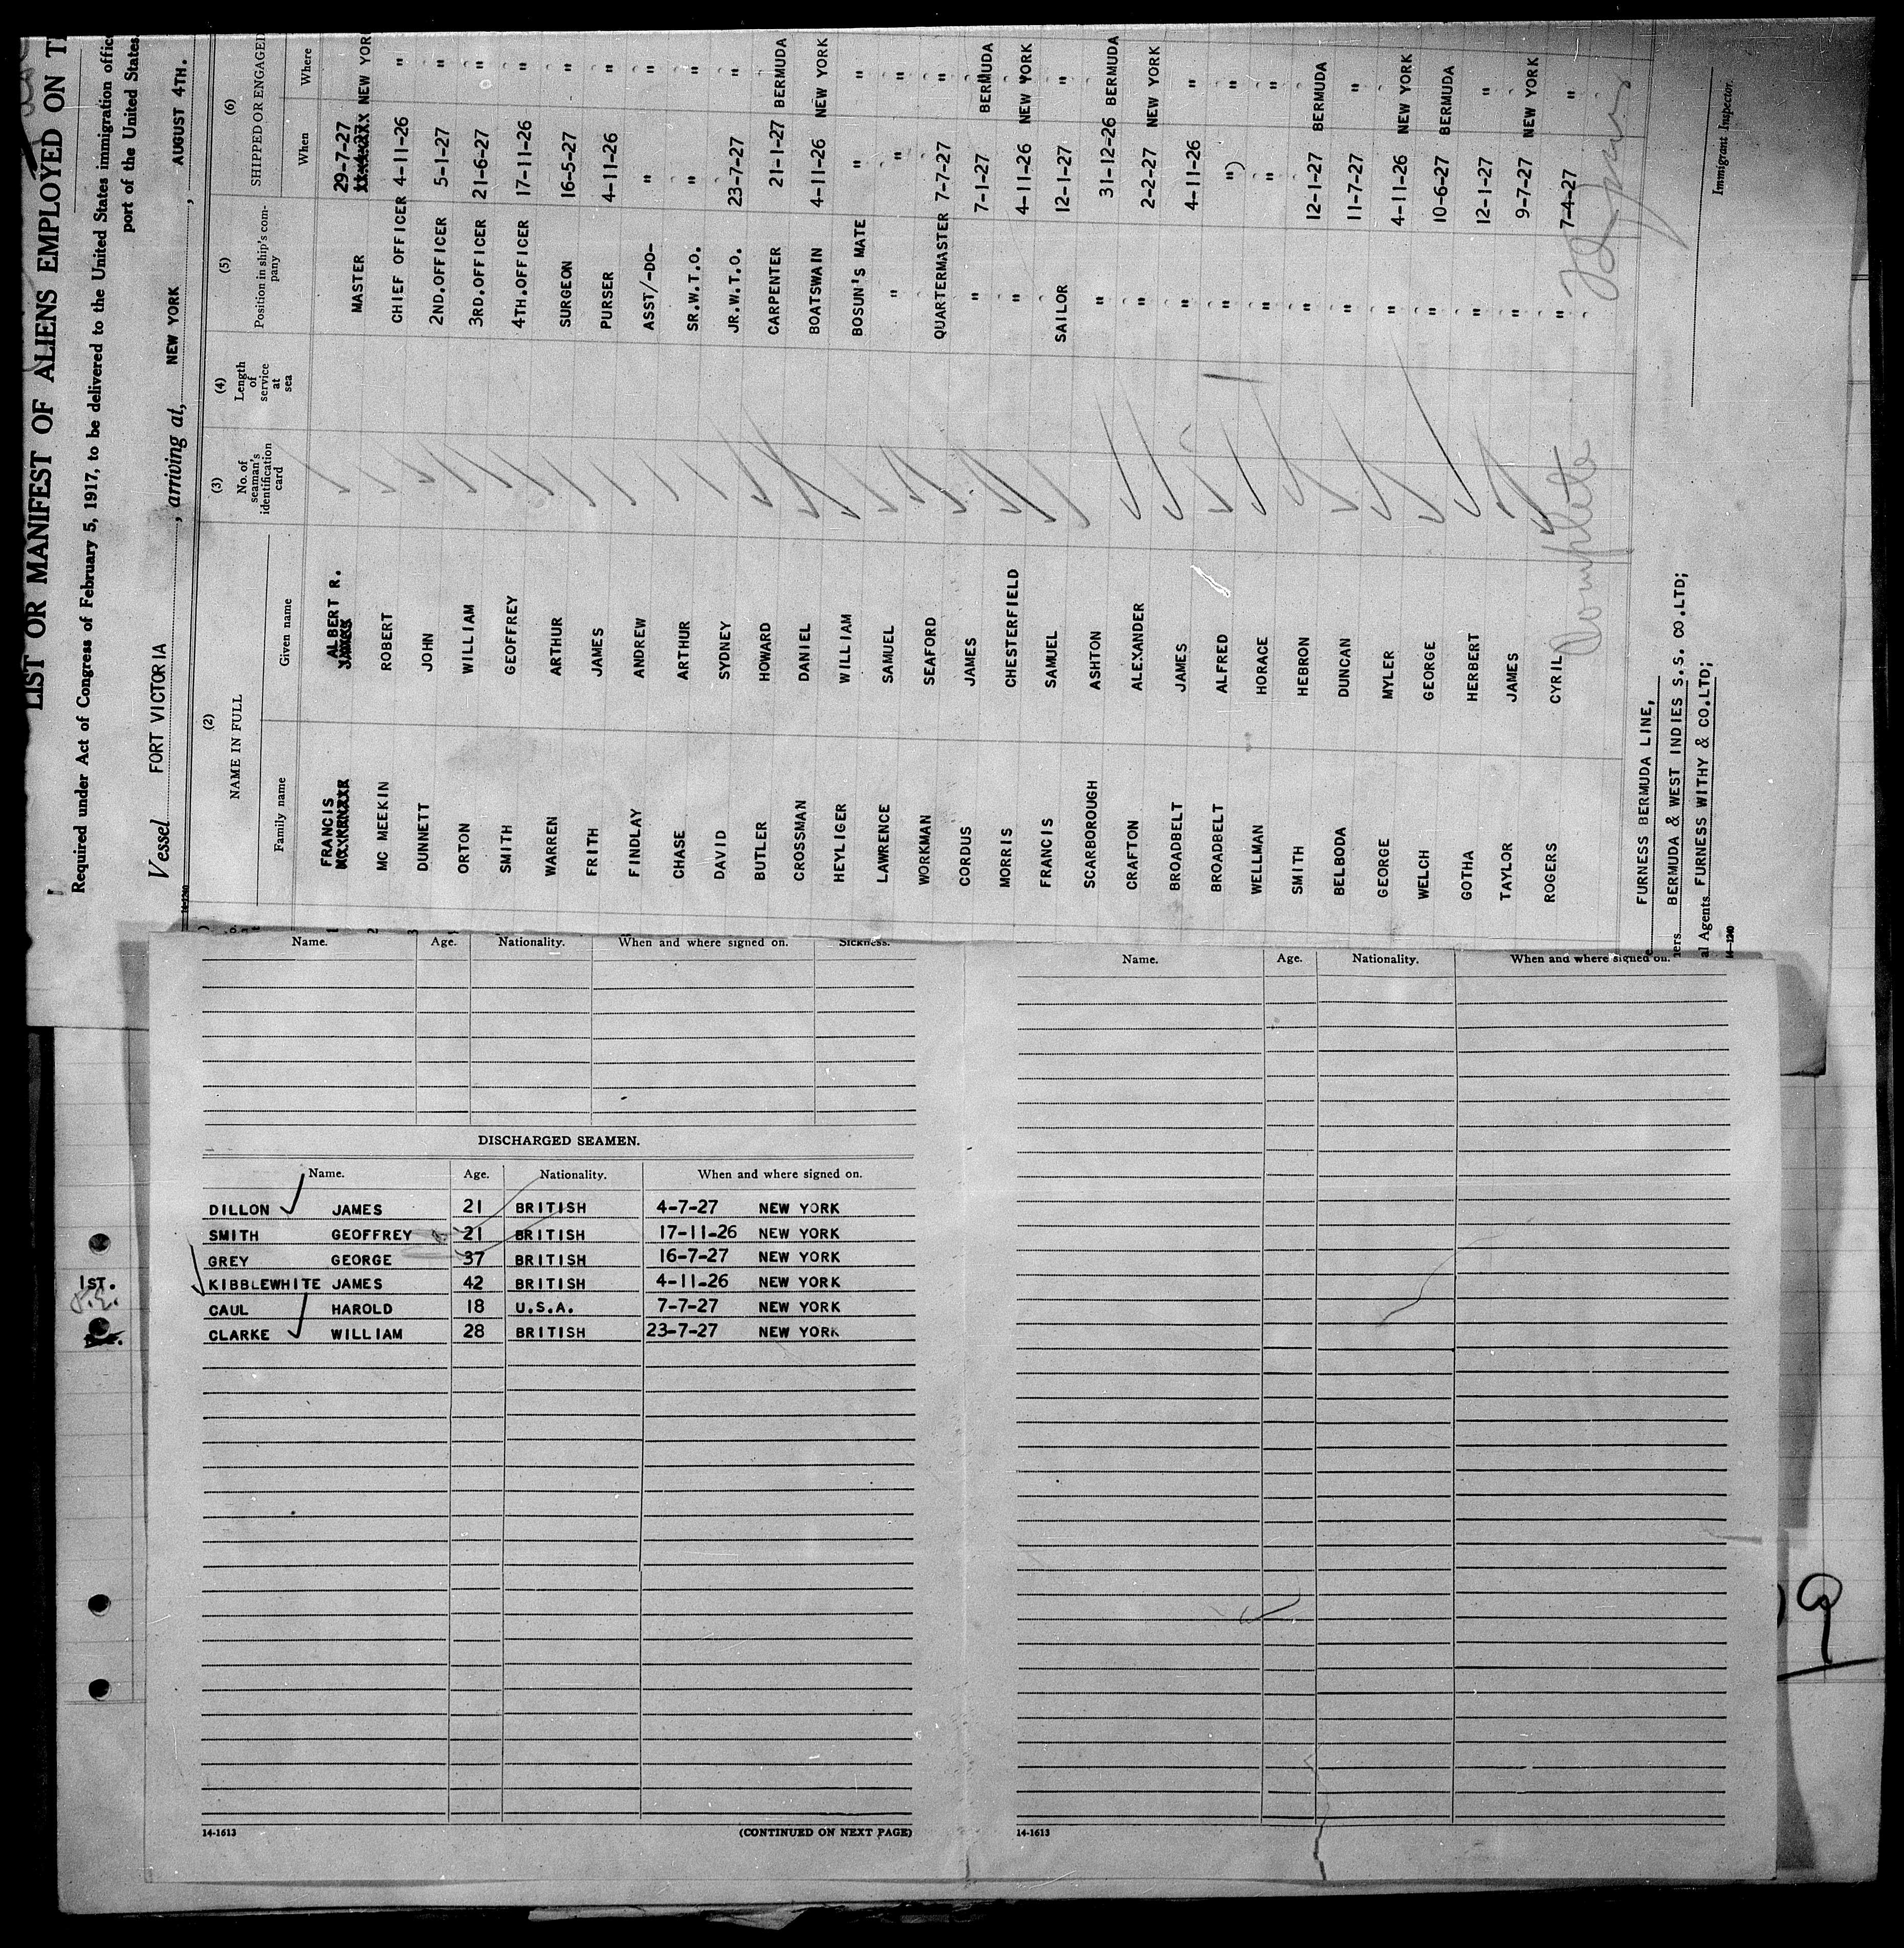 LIST OR MANIFEST OF ALIENS EMPLOYED ON
Required under Act of Congress of February 5, 1917, to be delivered to the United States immigration
port of the United States
Vessel FORT VICTORIA, arriving at, NEW YORK, AUGUST 4TH.
(2) (3) (4) (5) (6)
NAME IN FULL No. of seaman's identification card Length of service at sea Position in ship's company SHIPPED OR ENGAGED
Family name Given name When Where
FRANCIS ALBERT R. MASTER 29-7-27 NEW YORK
MC MEEKIN ROBERT CHIEF OFFICER 4-11-26 "
DUNNETT JOHN 2ND.OFFICER 5-1-27 "
ORTON WILLIAM 3RD.OFFICER 21-6-27 "
SMITH GEOFFREY 4TH.OFFICER 17-11-26 "
WARREN ARTHUR SURGEON 16-5-27 "
FRITH JAMES PURSER 4-11-26 "
FINDLAY ANDREW ASST/-DO- " "
CHASE ARTHUR SR.W.T.O. " "
DAVID SYDNEY JR.W.T.O. 23-7-27 "
BUTLER HOWARD CARPENTER 21-1-27 BERMUDA
CROSSMAN DANIEL BOATSWAIN 4-11-26 NEW YORK
HEYLIGER WILLIAM BOSUN'S MATE " "
LAWRENCE SAMUEL " " "
WORKMAN SEAFORD QUARTERMASTER 7-7-27 "
CORDUS JAMES " 7-1-27 BERMUDA
MORRIS CHESTERFIELD " 4-11-26 NEW YORK
FRANCIS SAMUEL SAILOR 12-1-27 "
SCARBOROUGH ASHTON " 31-12-26 BERMUDA
CRAFTON ALEXANDER " 2-2-27 NEW YORK
BROADBELT JAMES " 4-11-26 "
BROADBELT ALFRED " ") "
WELLMAN HORACE " " "
SMITH HEBRON " 12-1-27 BERMUDA
BELBODA DUNCAN " 11-7-27 "
GEORGE MYLER " 4-11-26 NEW YORK
WELCH GEORGE " 10-6-27 BERMUDA
GOTHA HERBERT " 12-1-27 "
TAYLOR JAMES " 9-7-27 NEW YORK
ROGERS CYRIL " 7-4-27 "
Complete
FURNESS BERMUDA LINE,
BERMUDA & WEST INDIES S.S. CO.LTD;
al Agents FURNESS WITHY & CO.LTD;
Immigrant Inspector.
14-1240
Name. Age. Nationality. When and where signed on. Sickness.
DISCHARGED SEAMEN.
Name. Age. Nationality. When and where signed on.
DILLON JAMES 21 BRITISH 4-7-27 NEW YORK
SMITH GEOFFREY 21 BRITISH 17-11-26 NEW YORK
GREY GEORGE 37 BRITISH 16-7-27 NEW YORK
1ST.
KIBBLEWHITE JAMES 42 BRITISH 4-11-26 NEW YORK
CAUL HAROLD 18 U.S.A. 7-7-27 NEW YORK
CLARKE WILLIAM 28 BRITISH 23-7-27 NEW YORK
14-1613 (CONTINUED ON NEXT PAGE)
Name. Age. Nationality. When and where signed on.
14-1613
9